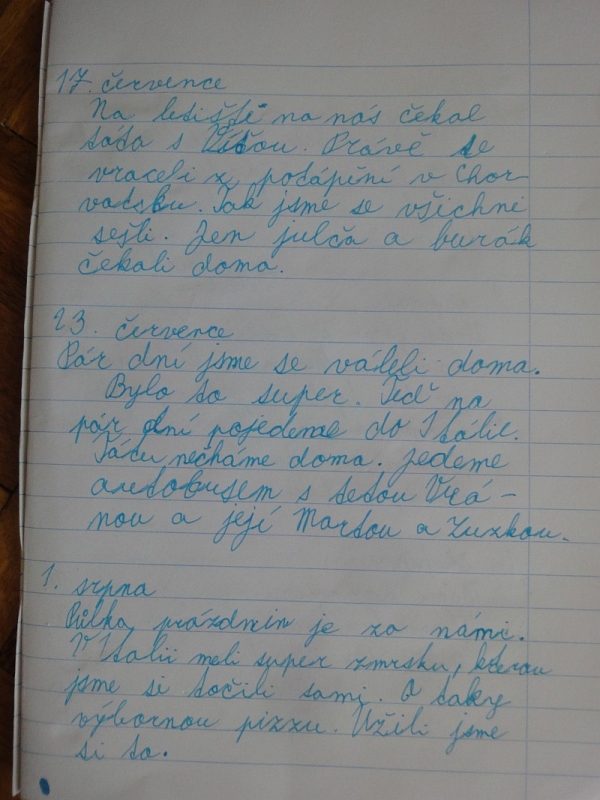 17. července
Na letišti na nás čekal
táta s Víťou. Právě se
vraceli z potápění v Chor
vatsku. Tak jsme se všichni
sešli. Jen julča a burák
čekali doma.
23. července
Pár dní jsme se váleli doma.
Bylo to super. Teď na
pár dní pojedeme do Itálie.
Tátu necháme doma. jedeme
autobusem s tetou Virá-
nou a její Martou a Zuzkou.
1. srpna
Půlka prázdnin je za námi.
V Italii meli super zmrsku, kterou
jsme si točili sami. A taky
výbornou pizzu. Užili jsme
si to.